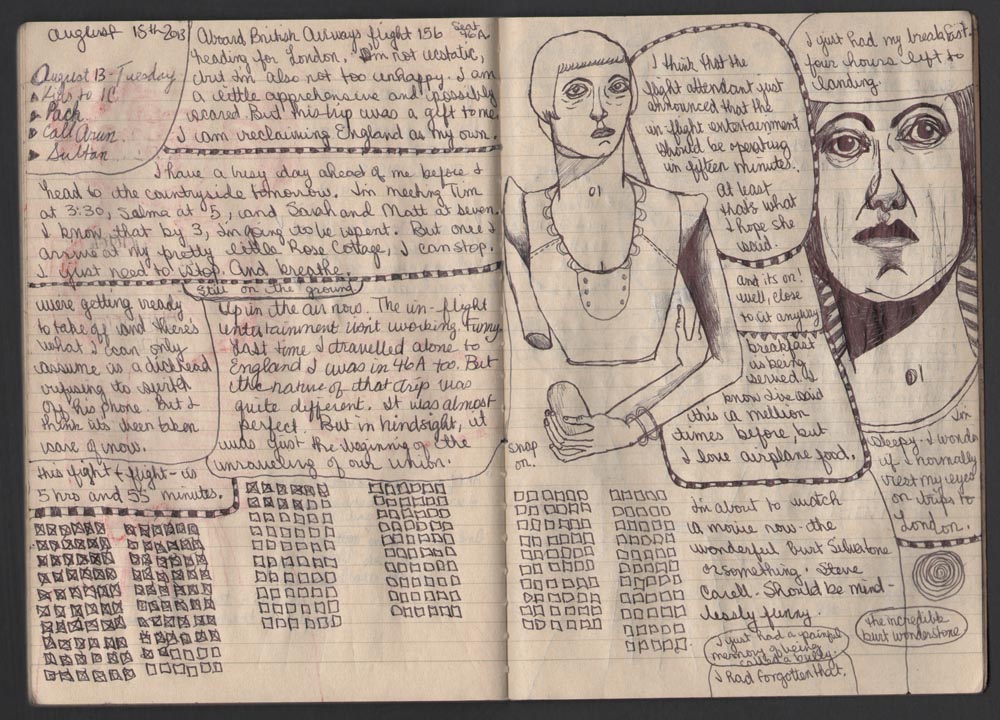 august 18th 2013
August 13 - Tuesday
to IC
Pack
Call Arun
Sultan
Aboard British Airways flight 156 Seat 46A
heading for London. I'm not ecstatic,
but I'm also not too unhappy. I am
a little apprehensive and possibly
scared. But this trip was a gift to me.
I am reclaiming England as my own.
I have a busy day ahead of me before I
head to the countryside tomorrow. I'm meeting Tim
at 3:30, Salma at 5, and Sarah and Matt at seven.
I know that by 3, I'm going to be spent. But once I
arrive at my pretty little Rose Cottage, I can stop.
I just need to stop. And breathe.
still on the ground
We're getting ready
to take off and there's
what I can only
assume is a dickhead
refusing to switch
off his phone. But I
think it's been taken
care of now.
this fight + flight - is
5 hrs and 55 minutes.
Up in the air now. The in-flight
entertainment isn't working. Funny.
Last time I travelled alone to
England I was in 46A too. But
the nature of that trip was
quite different. It was almost
perfect. But in hindsight, it
was just the beginning of the
unraveling of our union.
01
snap
on.
I think that the
flight attendant just
announced that the
in-flight entertainment
should be operating
in fifteen minutes.
At least
that's what
I hope she
said.
and its on!
well, close
to it anyway
breakfast
is being
served. I
know I've said
this a million
times before, but
I love airplane food.
I'm about to watch
a movie now - the
wonderful Burt Silverstone
or something. Steve
Carell. Should be mind-
lessly funny.
I just had a painful
memory of being
called a bully.
I had forgotten that.
I just had my breakfast.
four hours left to
landing
01
I'm
sleepy. I wonder
if I normally
rest my eyes
on trips to
London.
the incredible
burt wonderstone